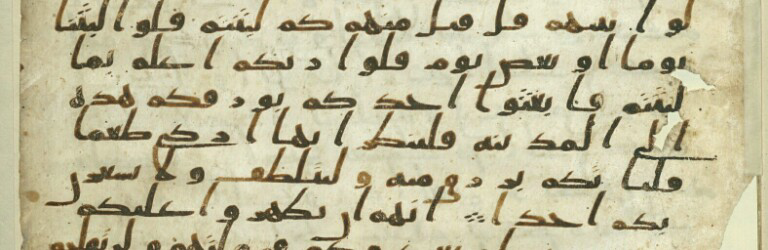 لوا بينهم قل قيل منهم كم لبثتم قلوا لبثنا
يوما او بعض يوم قلوا ربكم اعلم بما
لبثتم فابعثوا احدكم بورقكم هذه
الى المدينة فلينظر ايها ازكى طعما
فلياتكم برزق منه وليتلطف ولا يشعرن
بكم احدا انهم ان يظهروا عليكم